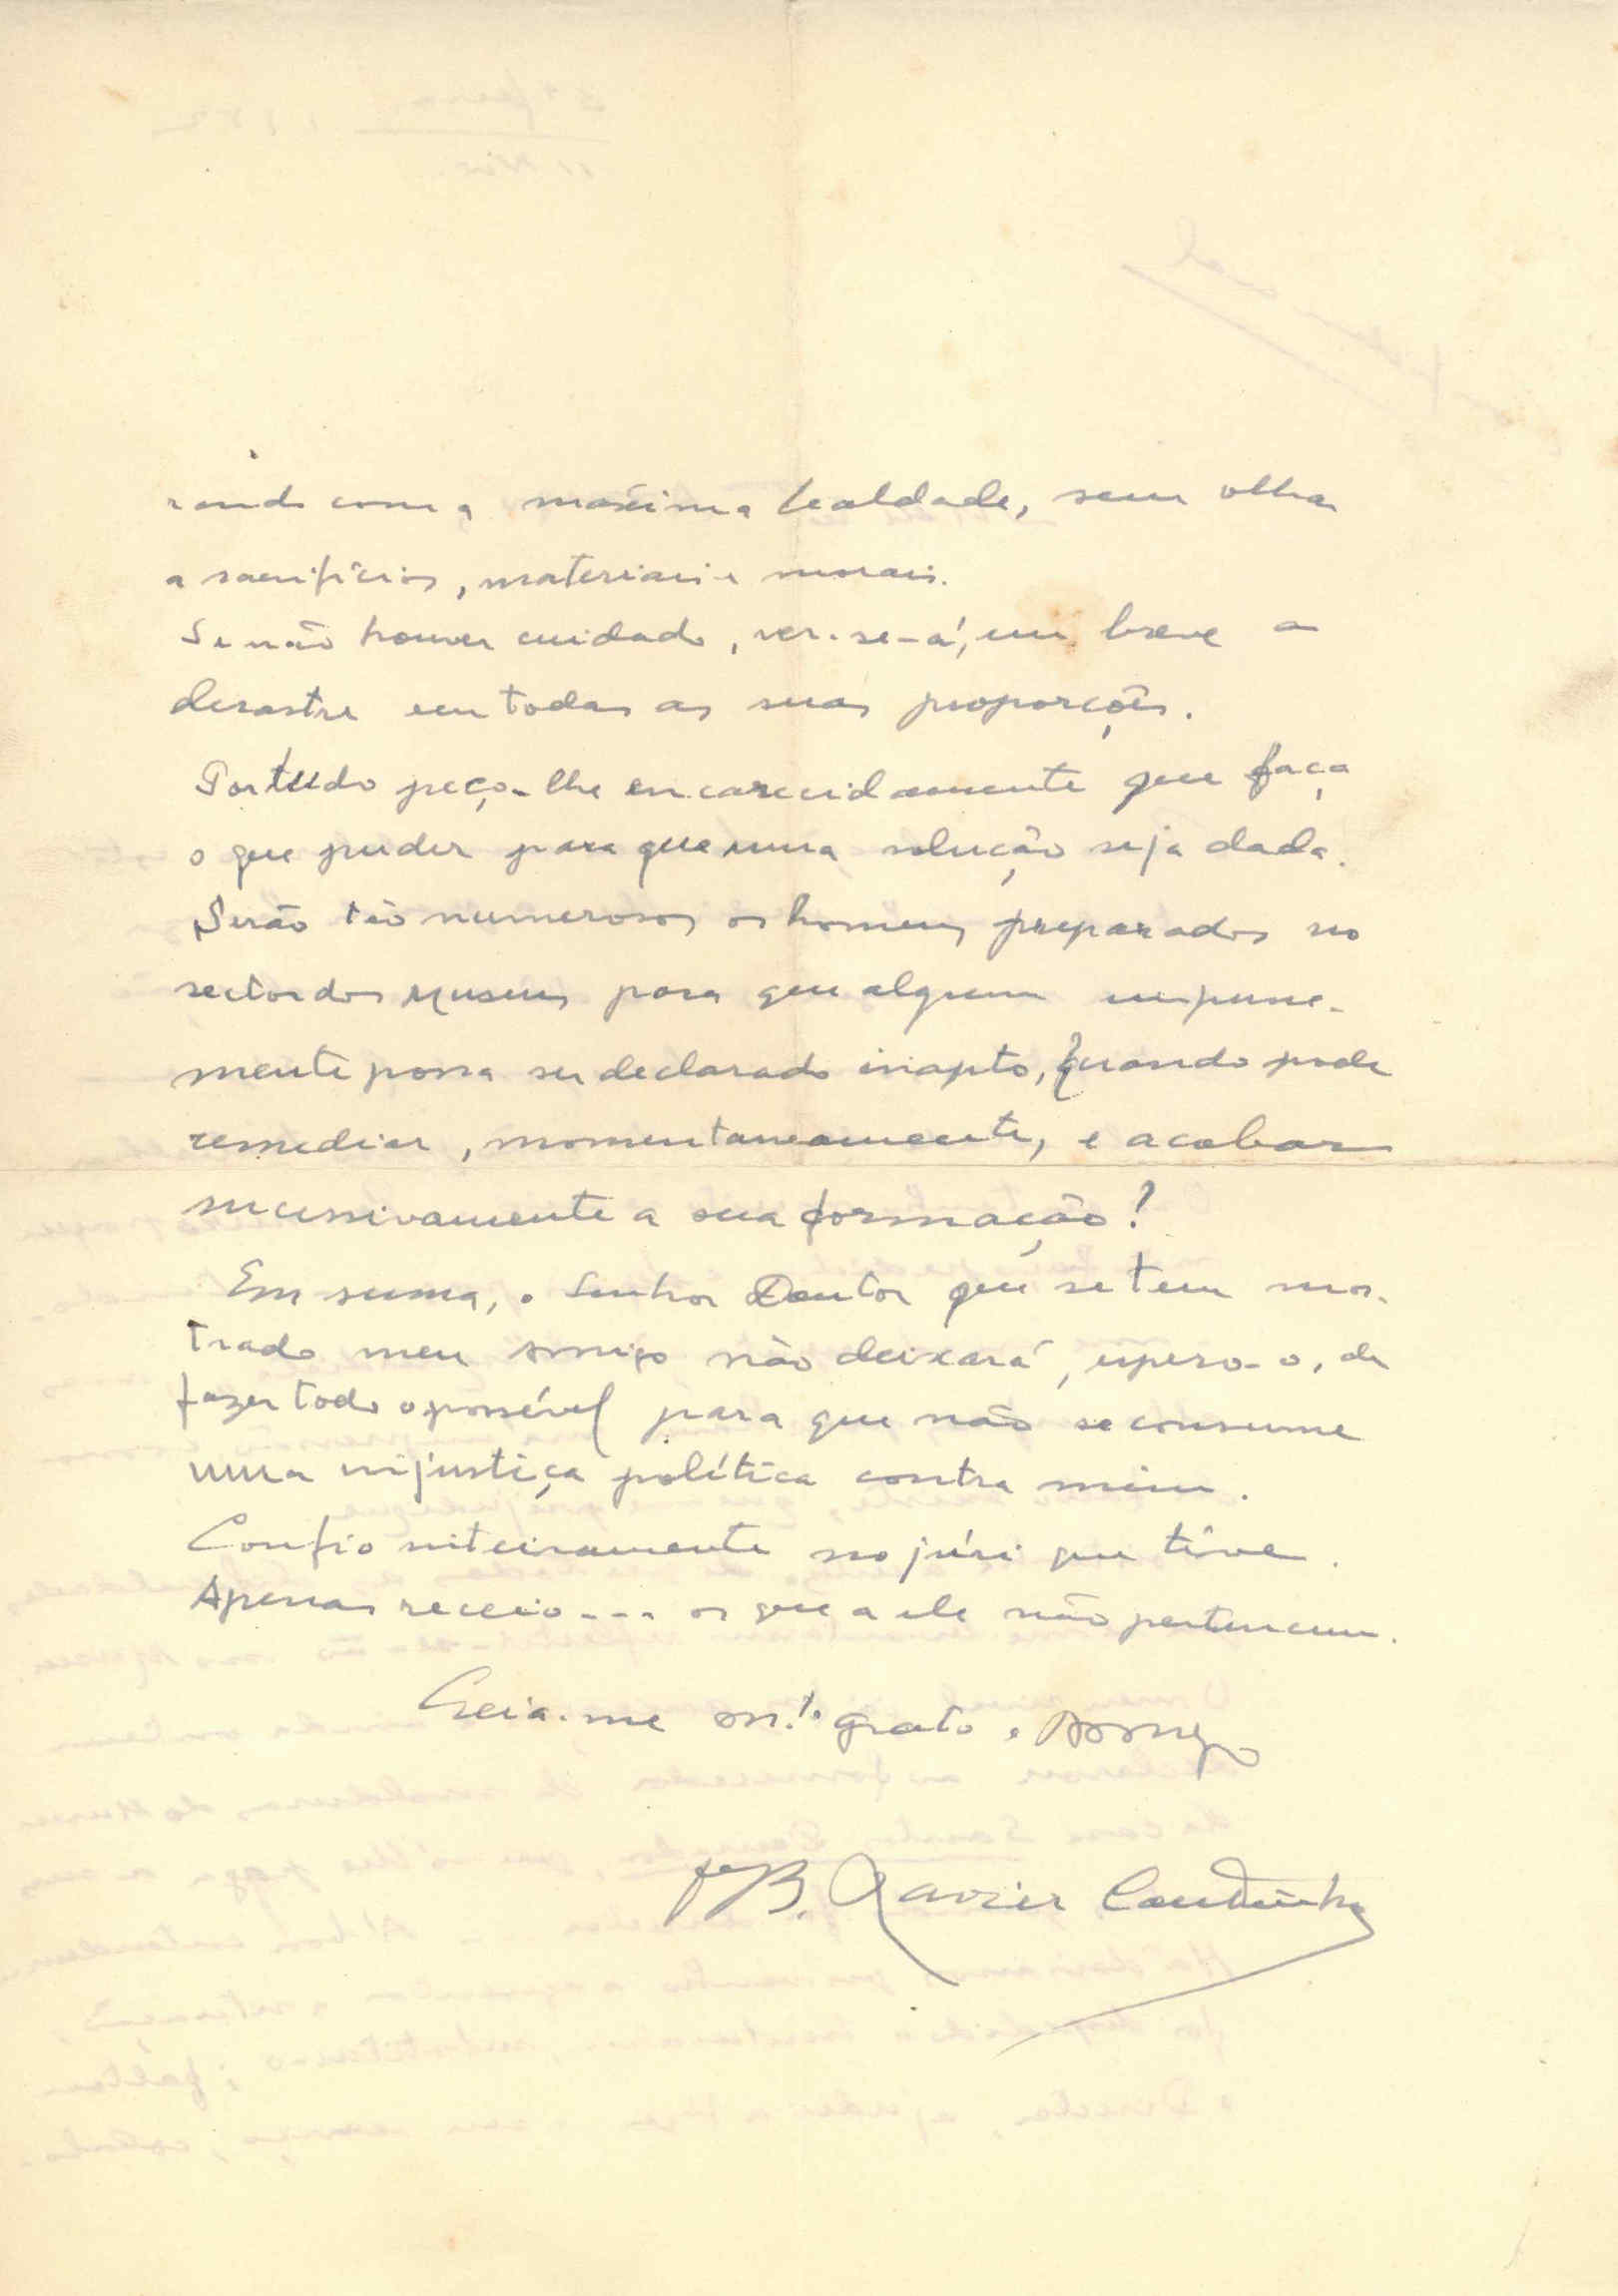 rando com a maxima lealdade, sem olhar
a sacrifícios, materiais e morais.
Se não houver cuidado, ver-se-á, em breve o
desastre em todas as suas proporções.
Por tudo peço-lhe encarecidamente que faça
o que puder para que uma solução seja dada.
Serão tão numerosos os homens preparados no
sector dos Museus para que algum impune-
mente possa ser declarado inapto, quando pode
remediar, momentaneamente, e acabar
sucessivamente a sua formação?
Em suma, o Senhor Doutor que se tem mos-
trado meu amigo não deixará, espero-o, de
fazer todo o possível para que não se consume
uma injustiça política contra mim.
Confio inteiramente no júri que tive.
Apenas receio --- os que a ele não pertencem.
Creia-me m.to grato e Amigo
B. Xavier Coutinho